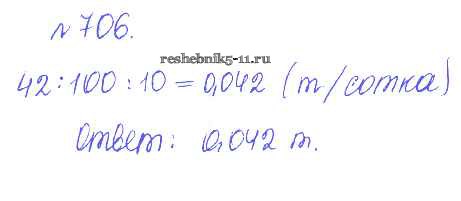 № 706.
reshebnik5-11.ru
42 : 100 : 10 = 0,042 (т/сотка)
Ответ: 0,042 т.